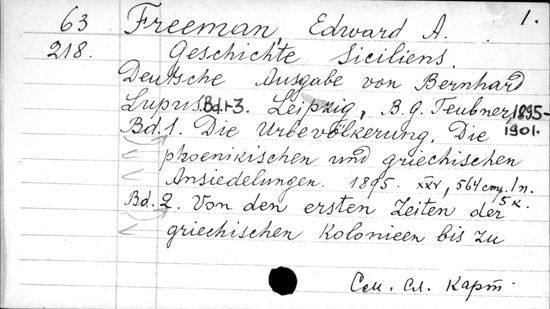 63 Freeman, Edward A. 1.
218. Geschichte Siciliens.
Deutsche Ausgabe von Bernhard
Lupus. Bd. 1-3. Leipzig, B. G. Teubner, 1895-
1901.
Bd. 1. Die Urbevölkerung. Die
phoenikischen und griechischen
Ansiedelungen. 1895. XXV, 564 стр. 1 п.
5 к.
Bd. 2. Von den ersten Zeiten der
griechischen Kolonieen bis zu
См. сл. карт.